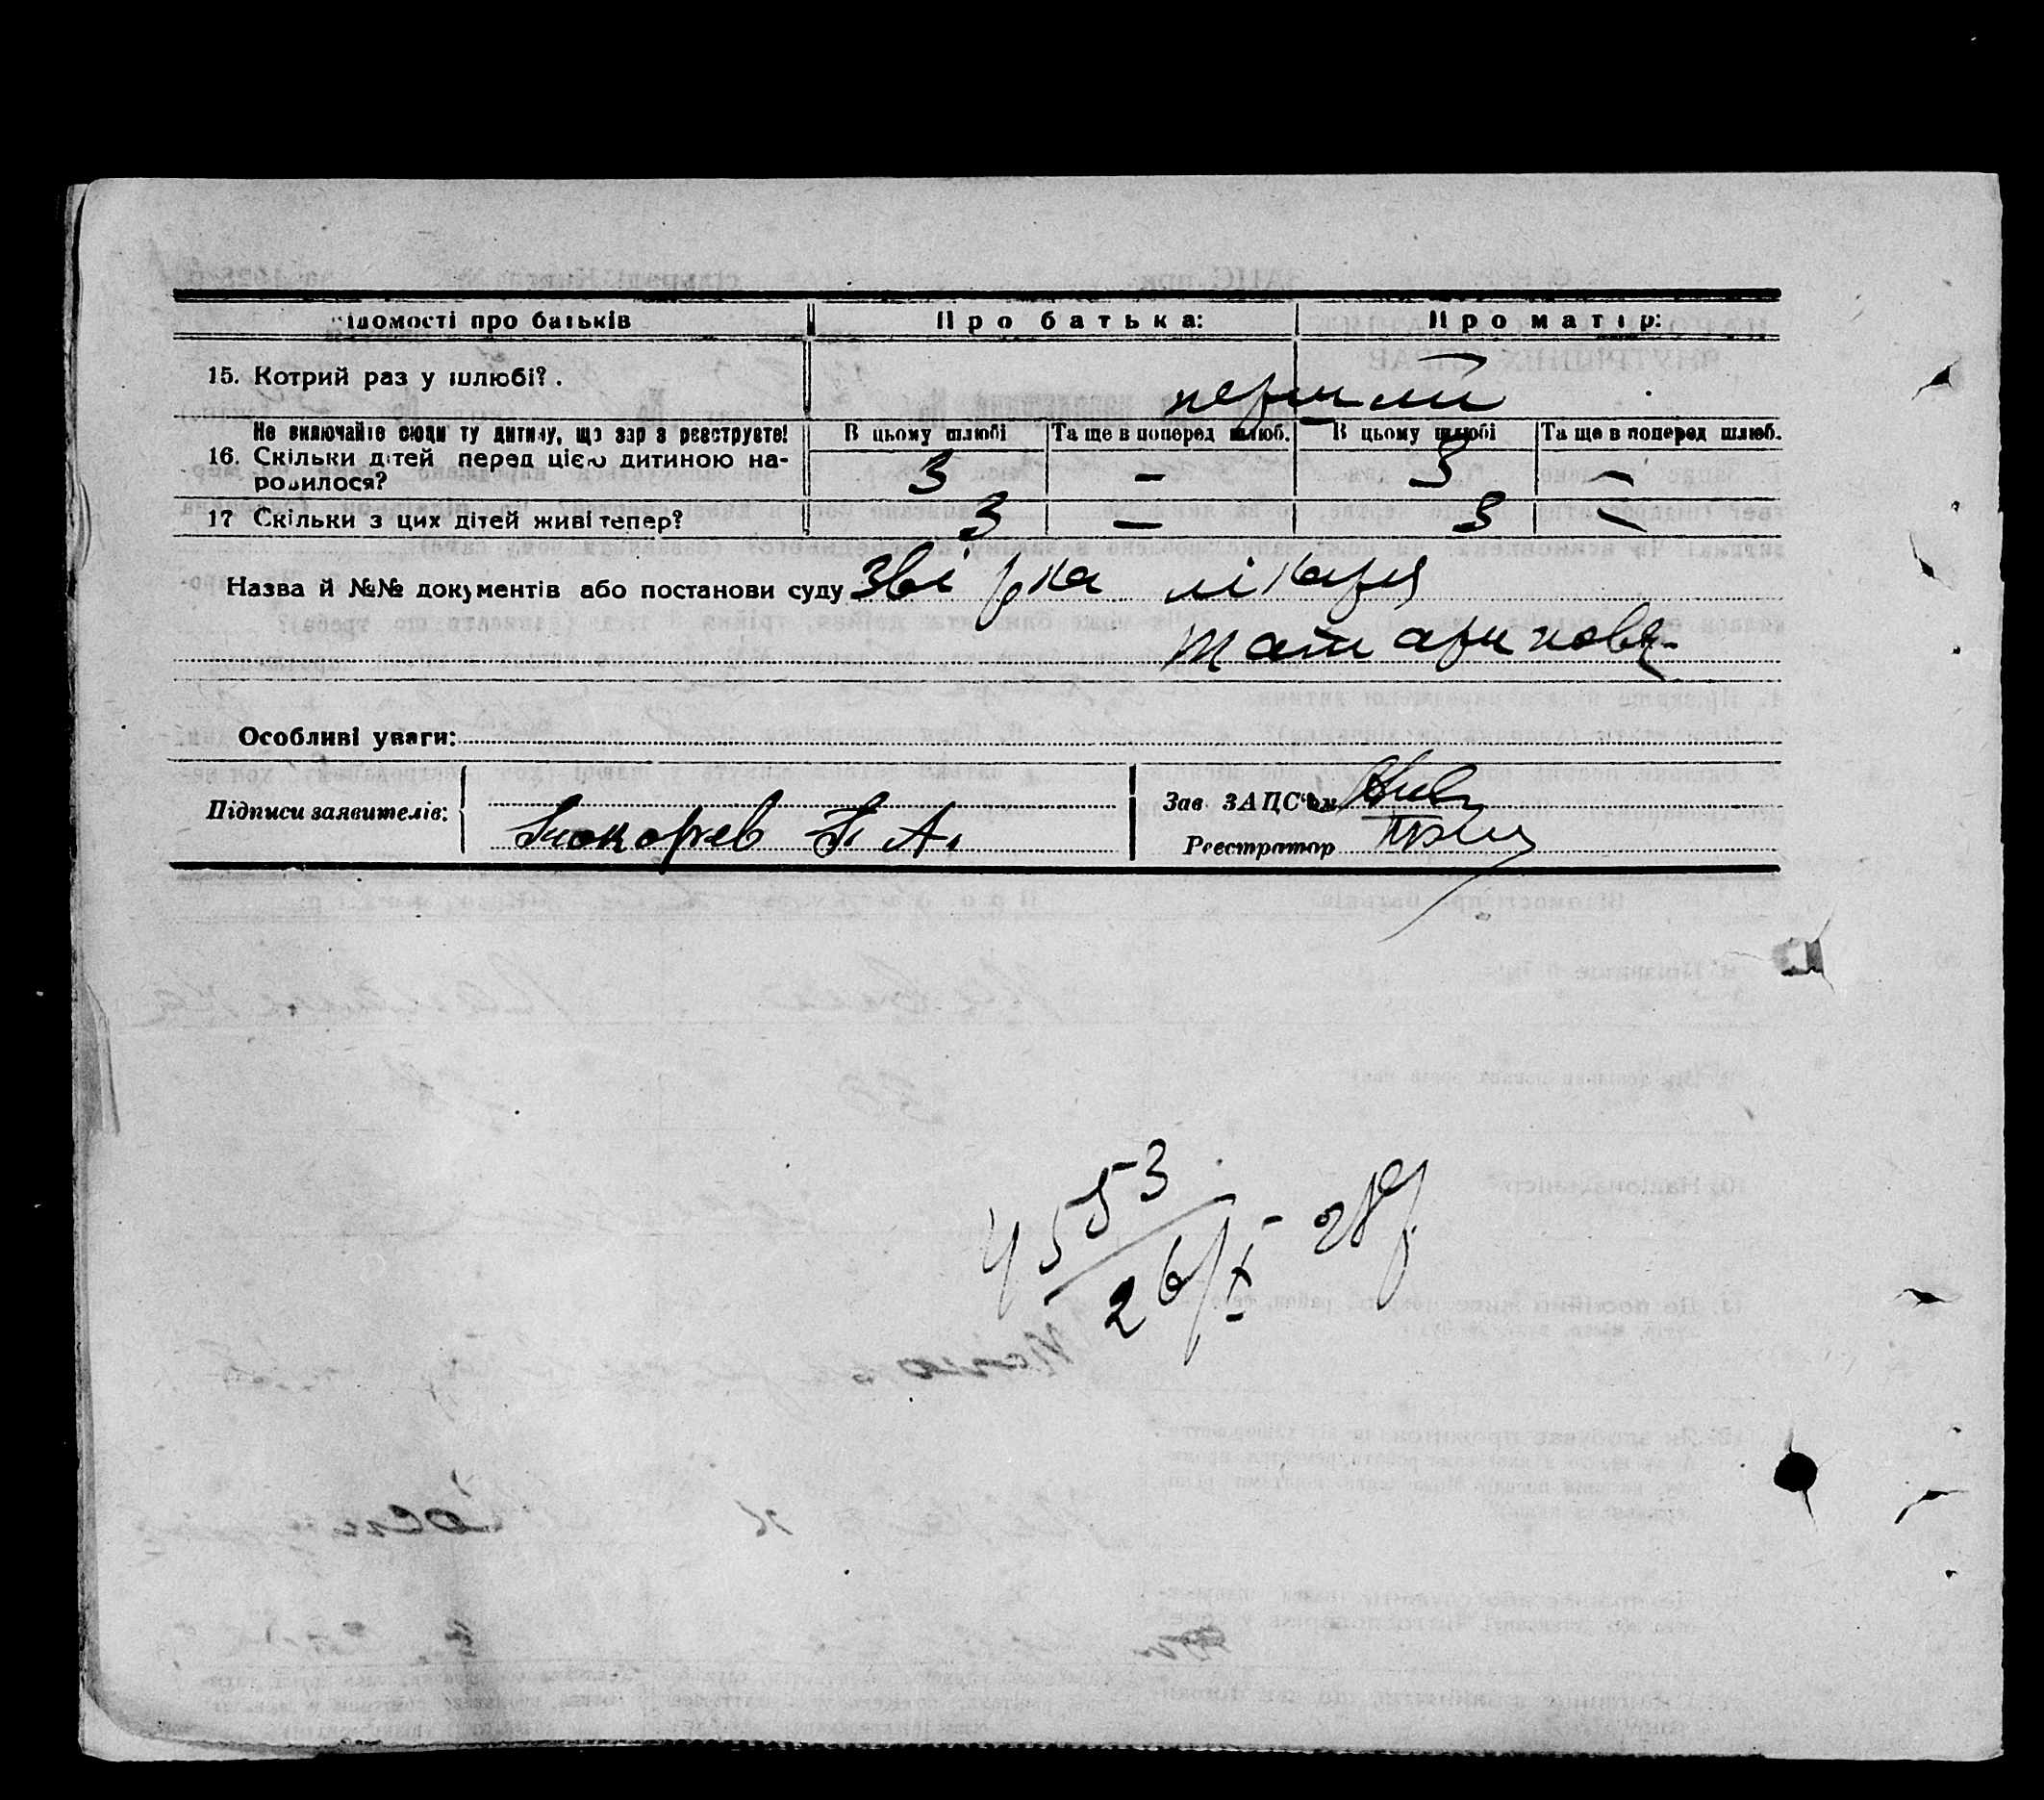 ідомості про батьків Про батька: Про матір:
15. Котрий раз у шлюбі? . перший
Не включайте сюди ту дитину, що зараз реєструєте! В цьому шлюбі Та ще в поперед шлюб. В цьому шлюбі Та ще в поперед шлюб.
16. Скільки дітей перед цією дитиною на-
родилося? 3 — 3 —
17 Скільки з цих дітей живі тепер? 3 — 3 —
Назва й №№ документів або постанови суду лікаря
Особливі уваги:
Підписи заявителів: Зав ЗАГС'ом
Реєстратор
4553
26/X - 28р